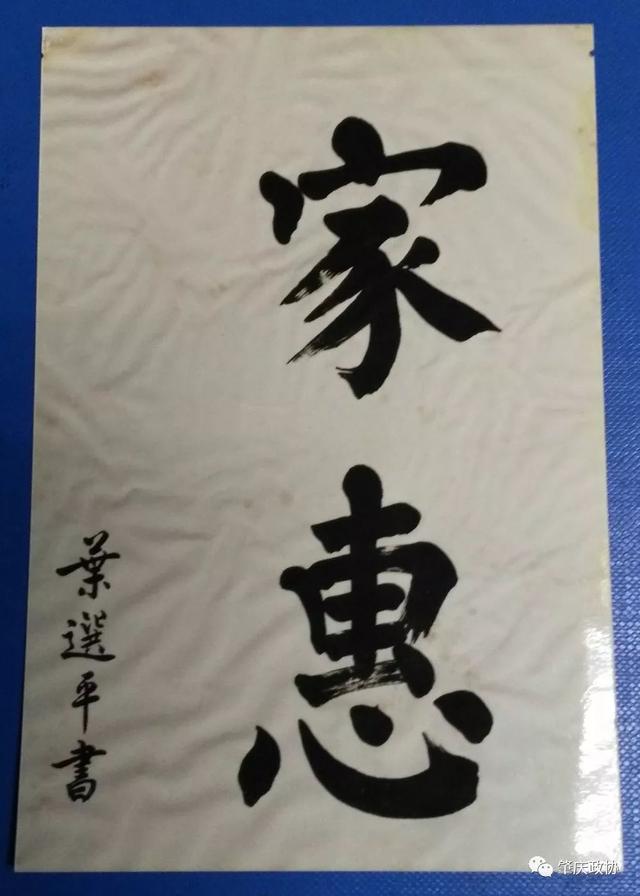 家惠
葉選平書
肇庆政协